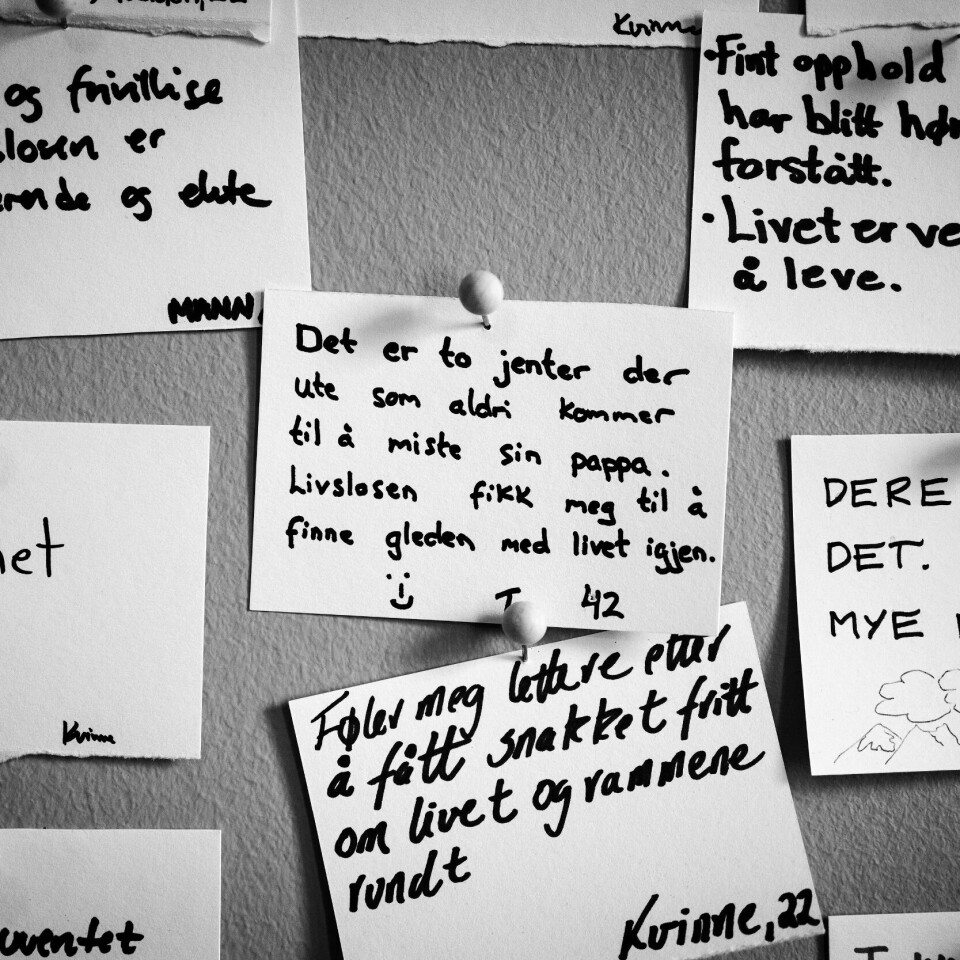 Kvinne
og frivillige
er
og ekte
MANN
• Fint opphold
har blitt
forstått.
• Livet er
å leve.
Det er to jenter der
ute som aldri kommer
til å miste sin pappa.
Livslosen fikk meg til å
finne gleden med livet igjen.
42
Kvinne
DERE
DET.
MYE
Føler meg lettere etter
å fått snakket fritt
om livet og rammene
rundt
Kvinne, 22